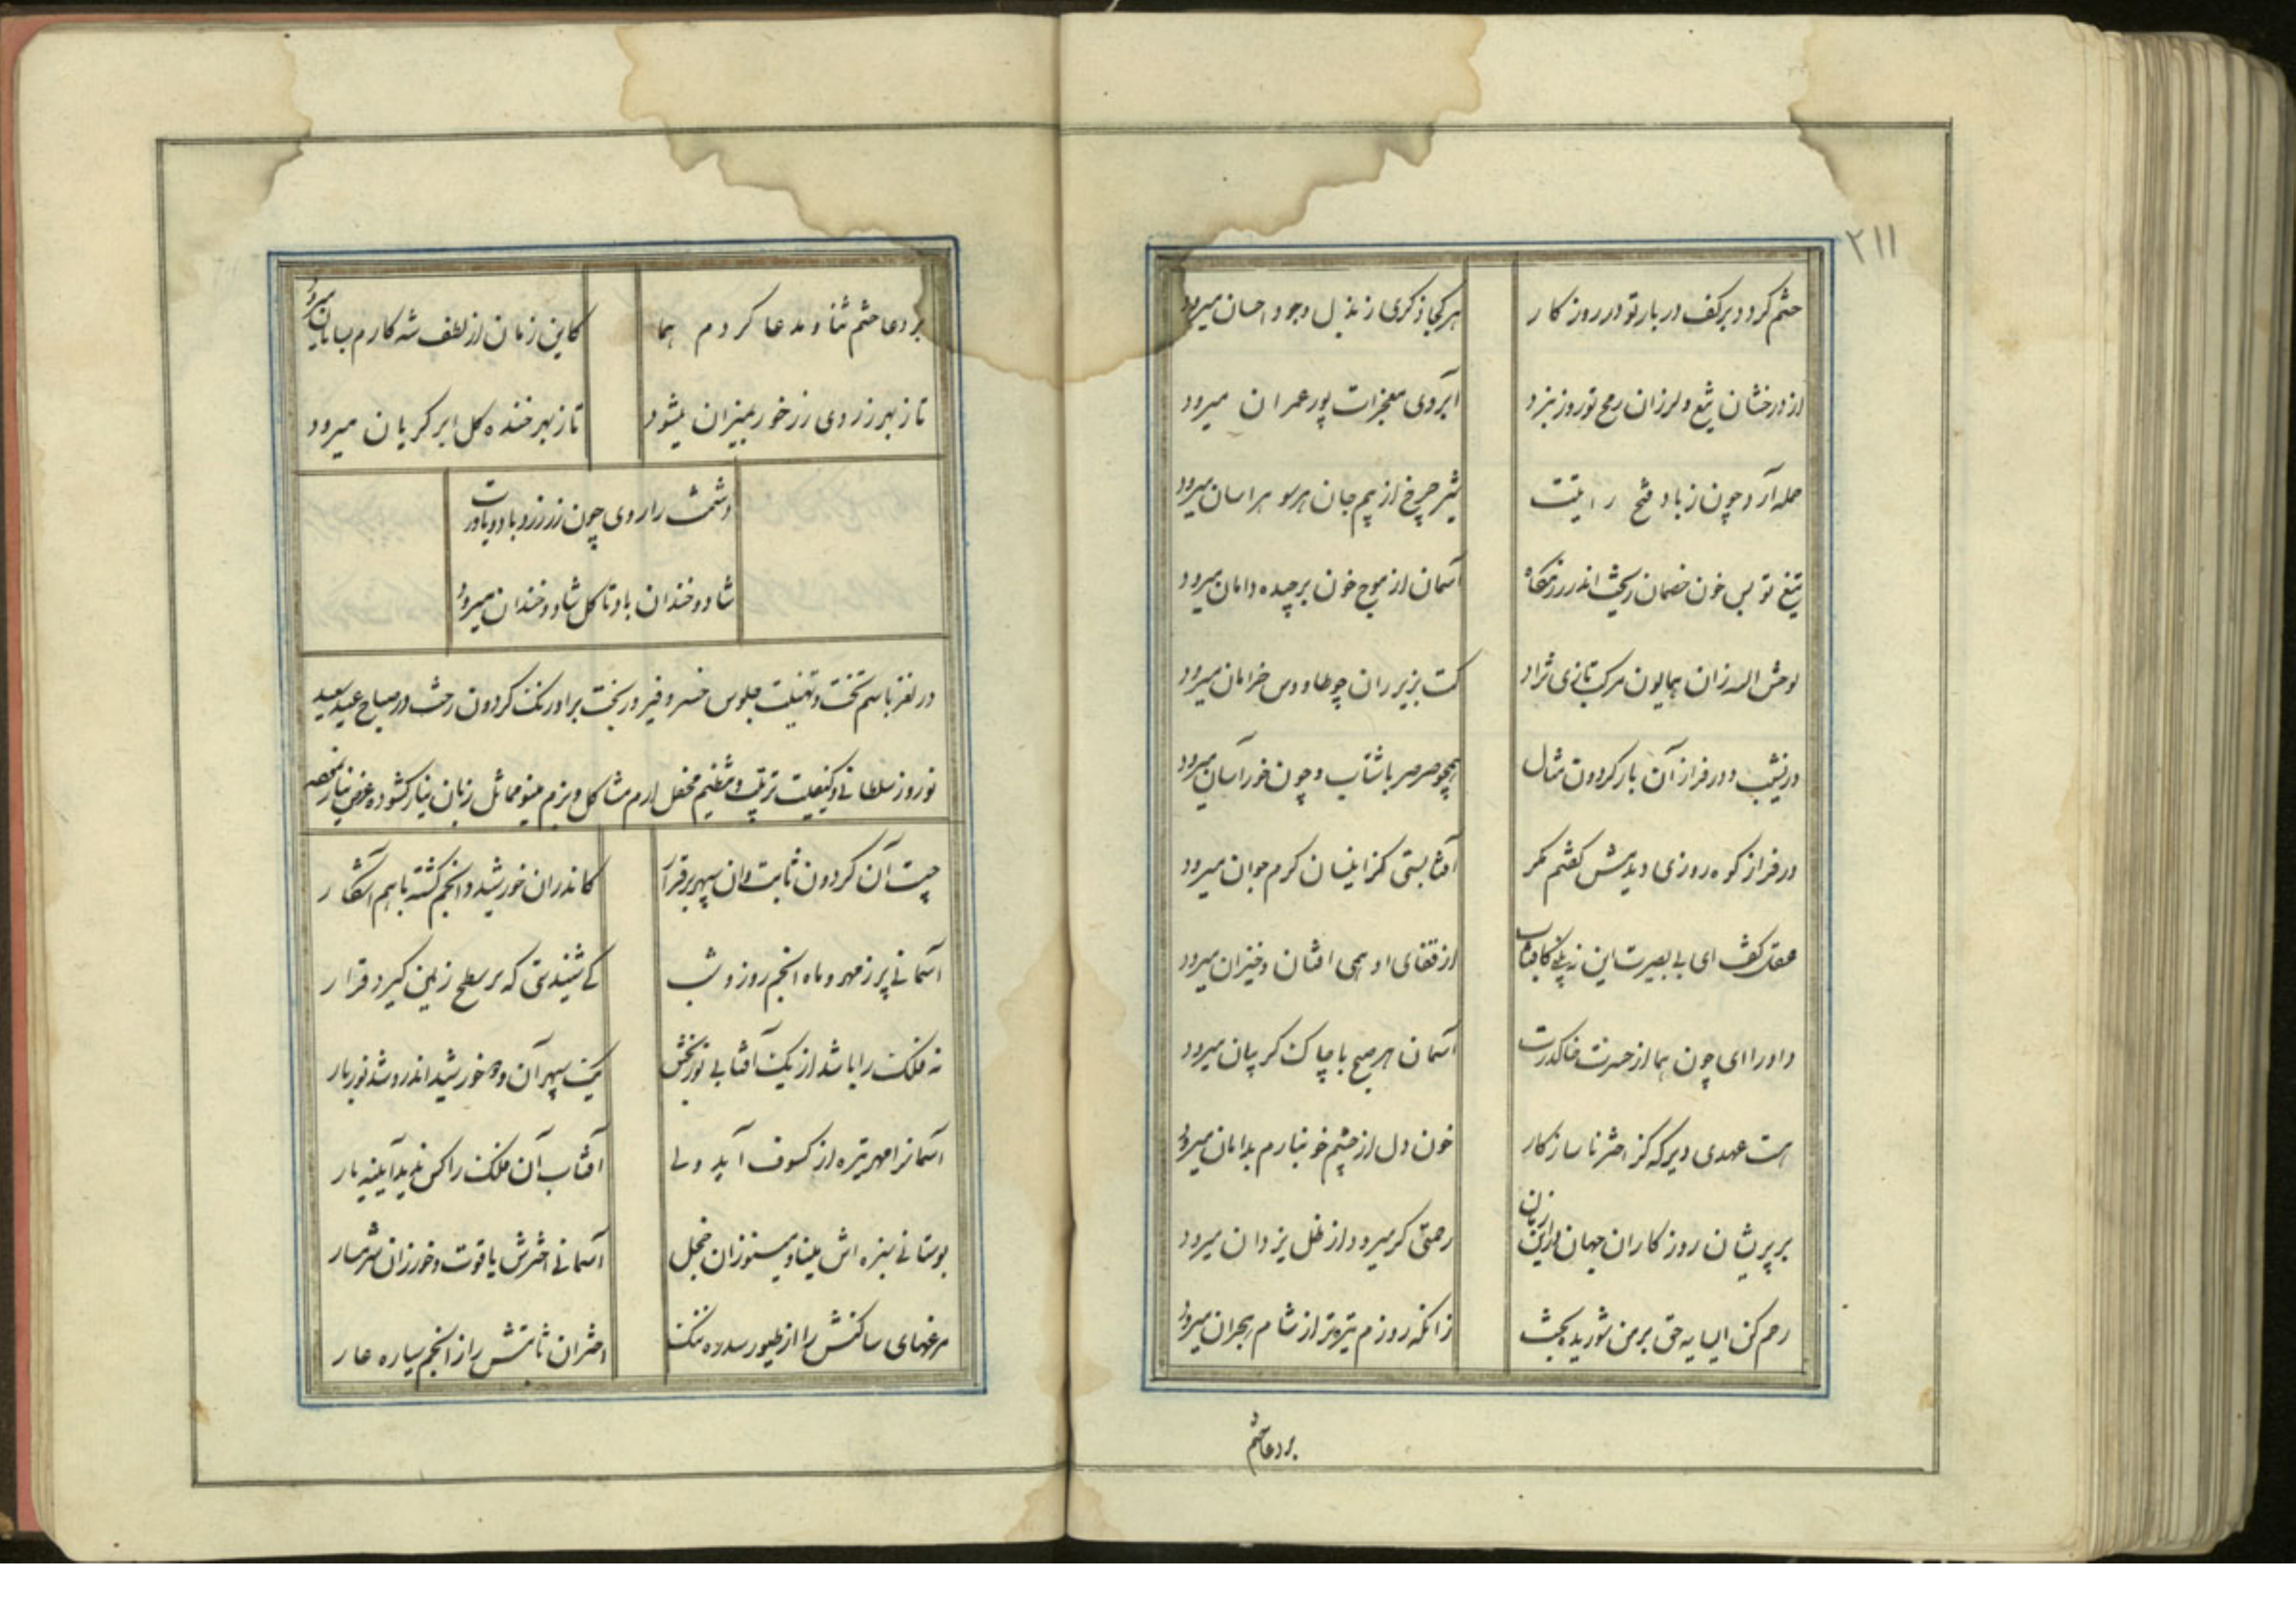 ۲۱۱
ختم کردد بر کف دربار تو در روزکار
هر کجا ذکری ز بذل وجود و احسان میرود
از درخشان تیغ و لرزان رمح تو روز نبرد
آبروی معجزات پور عمران میرود
حمله آرد چون ز باد فتح رایتت
شیر چرخ از بیم جان هر سو هراسان میرود
تیغ تو بس خون خصمان ریخت اندر رزمکاه
آسمان از موج خون برچیده دامان میرود
لوحش الله زان همایون مرکب تازی نژاد
کت بزیر ران چو طاووس خرامان میرود
در نشیب و در فراز آن بار کردون مثال
همچو صرصر باشتاب و چون خور آسان میرود
در فراز کوه روزی دیدمش کفتم مکر
آفتابستی کز اینسان کرم جولان میرود
عقل کفت ای بی بصیرت این نه بلکافتاب
از قفای او همی افتان و خیزان میرود
داورا ای چون هما از حسرت خاک درت
آسمان هر صبح با چاک کریبان میرود
هست عهدی دیر که کز اختر ناسازکار
خون دل از چشم خونبارم بدامان میرود
بر پریشان روزکاران جهان در این زمان
رحمتی کر میرود از ظل یزدان میرود
رحم کن ای سایه حق بر من شوریده بخت
زانکه روزم تیره تر از شام هجران میرود
بر دعا ختم
بر دعا ختم ثنا و مدعا کردم هما
کاین زمان از لطف شه کارم بسامان میرود
تا ز بهر زر روی زر خور بمیزان میشود
تا ز بهر خنده کل ابر کریان میرود
دشمنت را روی چون زر زرد باد و یاورت
شاد و خندان باد تا کل شاد و خندان میرود
در لغز باسم تخت و تهنیت جلوس خسرو فیروز بخت بر اورنک کردون رخت در صباح عید سعید
نوروز سلطانی و کیفیت ترتیب و تنظیم محفل ارم مشاکل و بزم مینو مماثل زبان نیاز کشوده عرض نیاز
چیست آن کردون ثابت وان سپهر برقرار
کاندران خورشید و انجم کشته با هم آشکار
آسمانی پر ز مهر و ماه و انجم روز و شب
کی شنیدستی که بر سطح زمین کیرد قرار
نه فلک را باشد از یک آفتابی نور بخش
یک سپهر آن و ده خورشید اندرو شد نوربار
آسمانرا مهر تیره از کسوف آید ولی
آفتاب آن فلک را کس ندید آیینه بار
بوستانی سبزه اش مینا و مینو زان خجل
آسمانی اخترش یاقوت و خور زان شرمسار
مرغهای ساکنش را از طیور سدره ننک
اختران ثابتش را از انجم سیاره عار